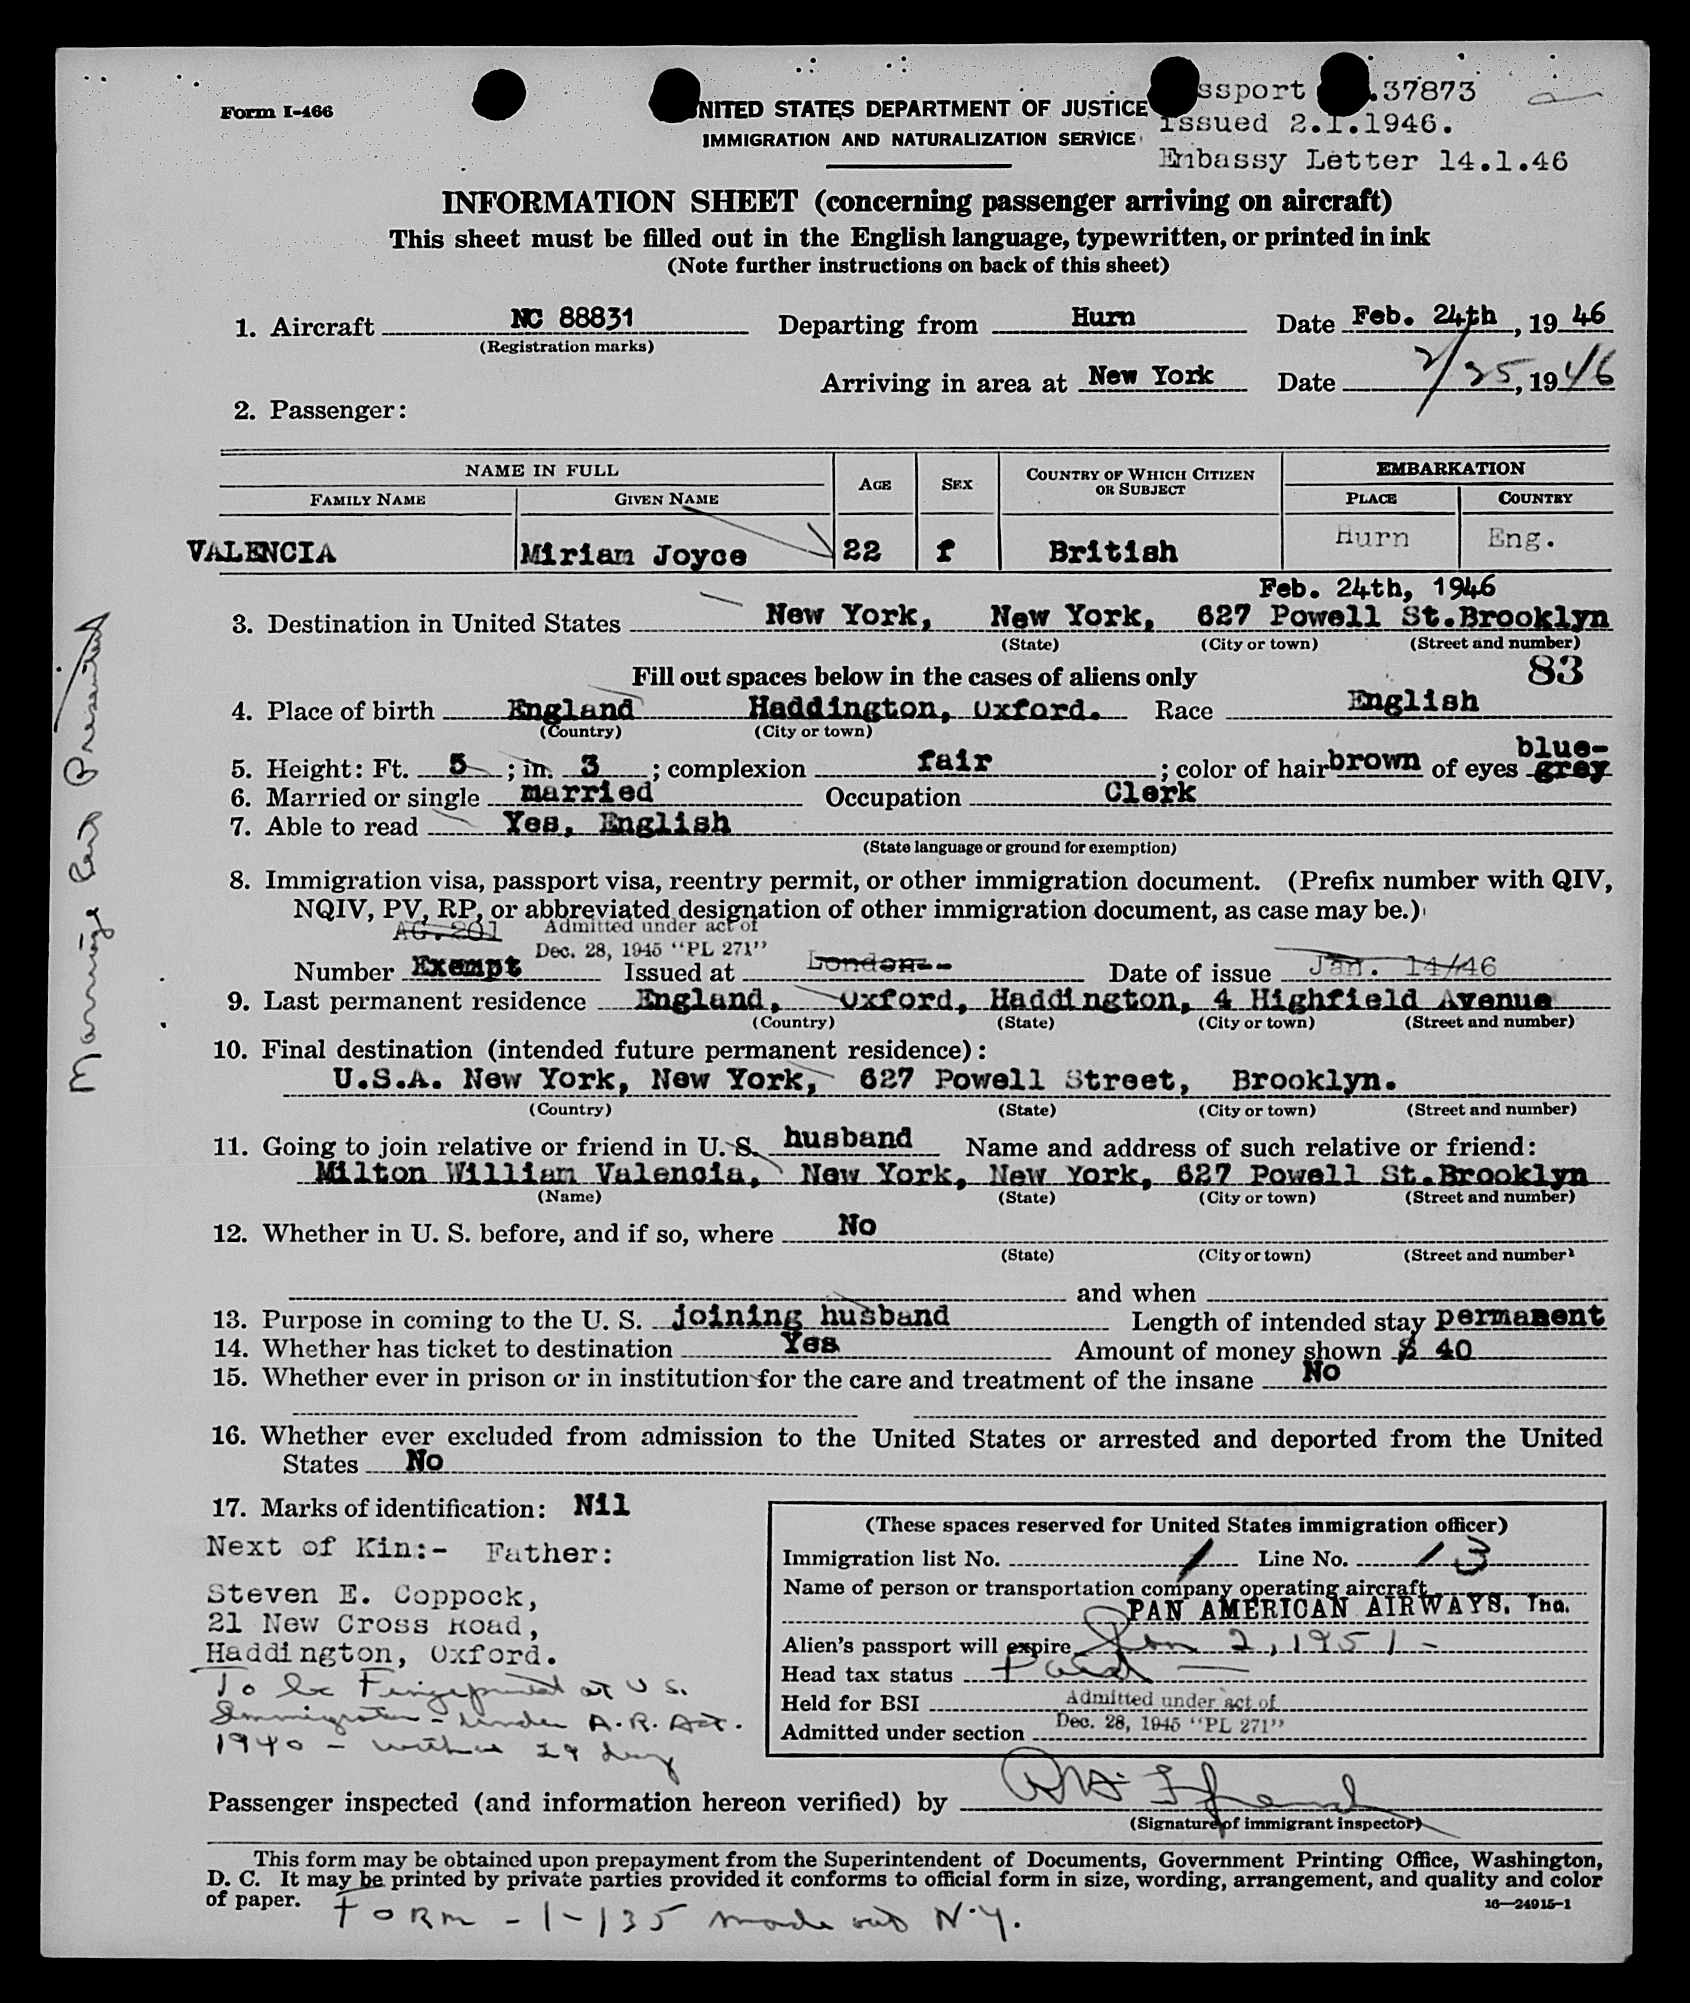 Form I-466
NITED STATES DEPARTMENT OF JUSTICE
IMMIGRATION AND NATURALIZATION SERVICE
ssport .37873
issued 2.1.1946.
Embassy Letter 14.1.46
INFORMATION SHEET (concerning passenger arriving on aircraft)
This sheet must be filled out in the English language, typewritten, or printed in ink
(Note further instructions on back of this sheet)
1. Aircraft NC 88831 Departing from Hurn Date Feb. 24th, 19 46
(Registration marks)
Arriving in area at New York Date 2/25, 19 46
2. Passenger:
NAME IN FULL AGE SEX COUNTRY OF WHICH CITIZEN OR SUBJECT EMBARKATION
FAMILY NAME GIVEN NAME PLACE COUNTRY
VALENCIA Miriam Joyce 22 f British Hurn Eng.
Feb. 24th, 1946
3. Destination in United States New York, New York, 627 Powell St. Brooklyn
(State) (City or town) (Street and number)
Fill out spaces below in the cases of aliens only 83
4. Place of birth England Haddington, Oxford. Race English
(Country) (City or town)
5. Height: Ft. 5; in. 3; complexion fair; color of hair brown of eyes blue-grey
6. Married or single married Occupation Clerk
7. Able to read Yes, English
(State language or ground for exemption)
8. Immigration visa, passport visa, reentry permit, or other immigration document. (Prefix number with QIV,
NQIV, PV, RP, or abbreviated designation of other immigration document, as case may be.)
AG.201 Admitted under act of
Dec. 28, 1945 "PL 271"
Number Exempt Issued at London-- Date of issue Jan. 14/46
9. Last permanent residence England, Oxford, Haddington, 4 Highfield Avenue
(Country) (State) (City or town) (Street and number)
10. Final destination (intended future permanent residence):
U.S.A. New York, New York, 627 Powell Street, Brooklyn.
(Country) (State) (City or town) (Street and number)
11. Going to join relative or friend in U. S. husband Name and address of such relative or friend:
Milton William Valencia, New York, New York, 627 Powell St. Brooklyn
(Name) (State) (City or town) (Street and number)
12. Whether in U. S. before, and if so, where No
(State) (City or town) (Street and number)
and when
13. Purpose in coming to the U. S. joining husband Length of intended stay permanent
14. Whether has ticket to destination Yes Amount of money shown $ 40
15. Whether ever in prison or in institution for the care and treatment of the insane No
16. Whether ever excluded from admission to the United States or arrested and deported from the United
States No
17. Marks of identification: Nil
Next of Kin:- Father:
Steven E. Coppock,
21 New Cross Road,
Haddington, Oxford.
To be Fingerprinted at U S.
Immigration - under A.R. Act.
1940 - within 29 days
(These spaces reserved for United States immigration officer)
Immigration list No. 1 Line No. 13
Name of person or transportation company operating aircraft
PAN AMERICAN AIRWAYS, Inc.
Alien's passport will expire Jan 2, 1951 -
Head tax status Paid -
Held for BSI
Admitted under section Admitted under act of
Dec. 28, 1945 "PL 271"
Passenger inspected (and information hereon verified) by
(Signature of immigrant inspector)
This form may be obtained upon prepayment from the Superintendent of Documents, Government Printing Office, Washington,
D. C. It may be printed by private parties provided it conforms to official form in size, wording, arrangement, and quality and color
of paper.
16—24915-1
Form - 1-135 made out N.Y.
Marriage Cert Presented